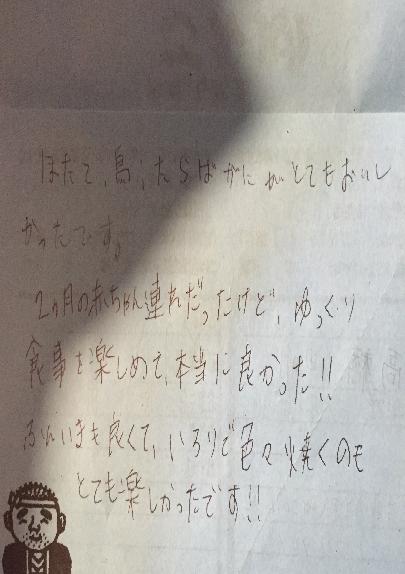 ほたて、鳥、たらばがにがとてもおいし
かったです。
2ヶ月の赤ちゃん連れだったけど、ゆっくり
食事を楽しめて、本当に良かった!!
ふんいきも良くて、いろりで色々焼くのも
とても楽しかったです!!